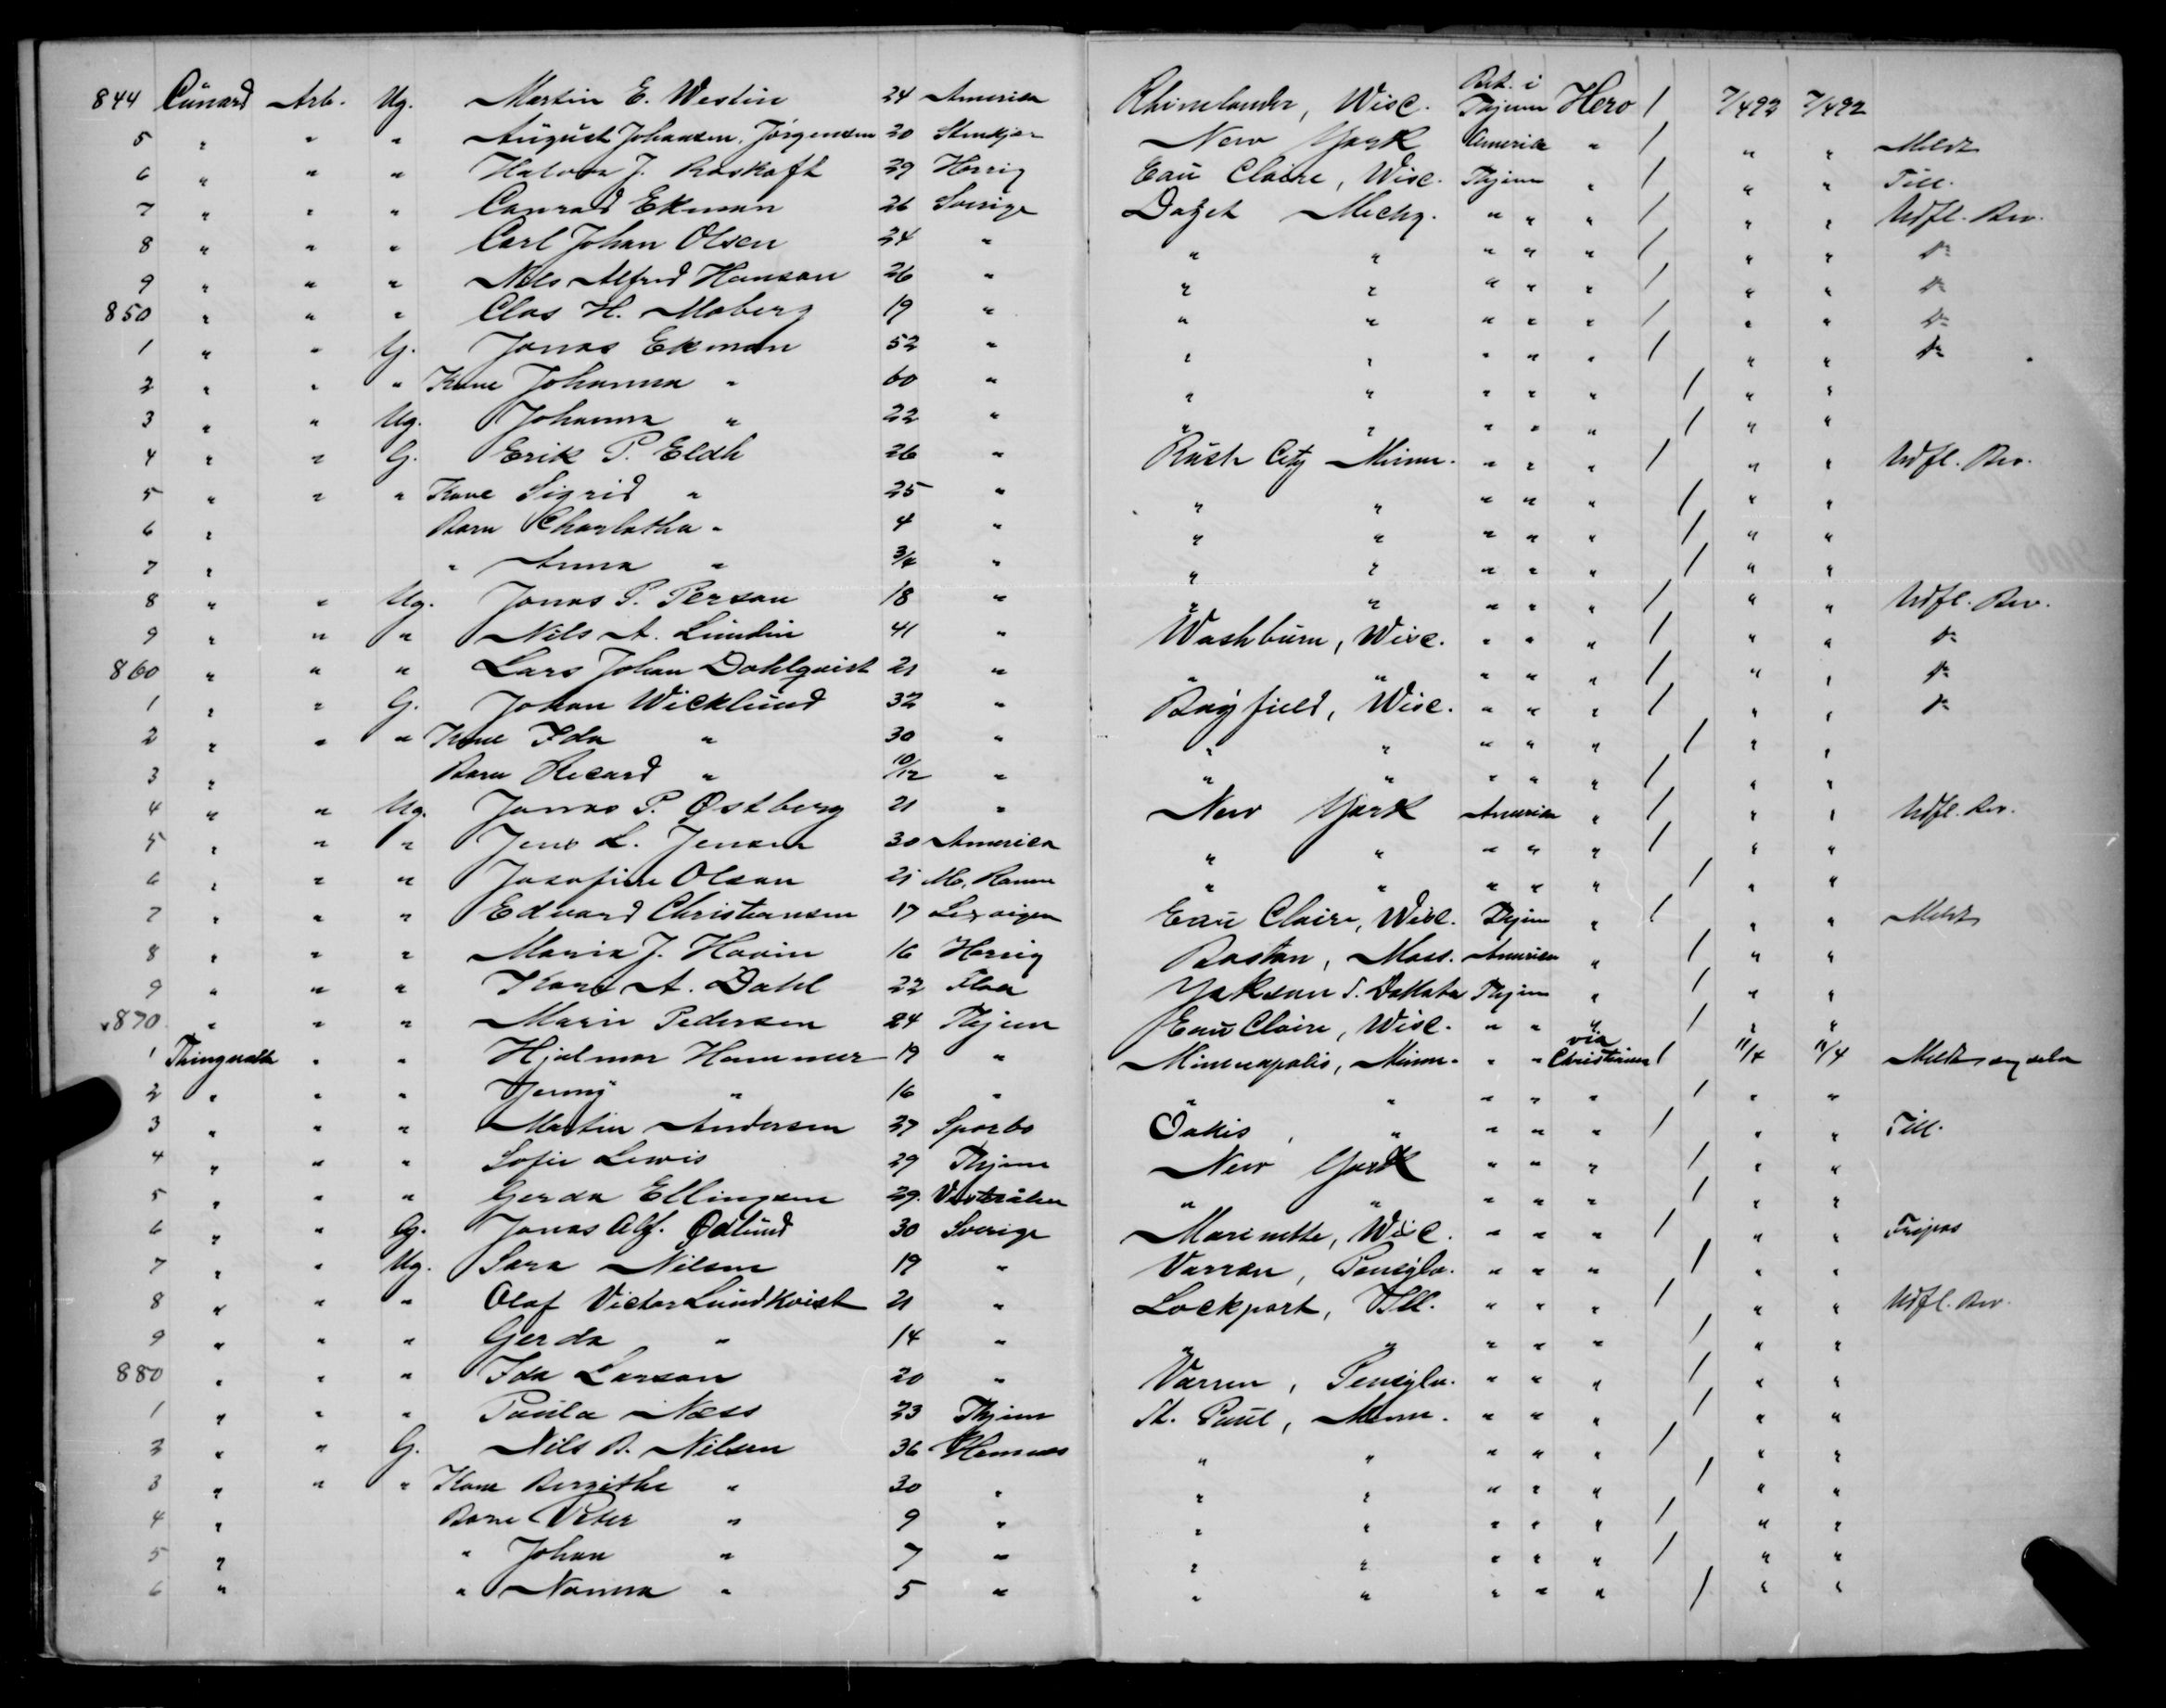 844 Cunard Arb. Ug. Martin E. Westin 24 America Rhinelander, Wisc. Bet. i Thjem Hero / 7/4 92 7/4 92
5 " " " August Johansen Jørgensen 20 Stenkjær New York America " / " " Meldt
6 " " " Halvor J. Roskaft 29 Herrig Eau Claire, Wisc. Thjem " / " " Till.
7 " " " Conrad Ekman 26 Sverige Michg. " " " / " " Udfl. Bev.
8 " " " Carl Johan Olsen 24 " " " " " " / " " do
9 " " " Nils Alfred Hanson 26 " " " " " " / " " do
850 " " " Clas H. Moberg 19 " " " " " " / " " do
1 " " G. Jonas Ekman 52 " " " " " " / " " do
2 " " " Kone Johanna " 60 " " " " " " / " "
3 " " Ug. Johanna " 22 " " " " " " / " "
4 " " G. Erik P. Eldh 26 " Rush City Minn. " " " / " " Udfl. Bev.
5 " " " Kone Sigrid " 25 " " " " " " / " "
6 " Barn Charlotha " 4 " " " " " " / " "
7 " " Anna " 3/4 " " " " " " / " "
8 " " Ug. Jonas P. Person 18 " " " " " " / " " Udfl. Bev.
9 " " " Nils A. Lundin 41 " Washburn, Wisc. " " " / " " do
860 " " " Lars Johan Dahlqvist 21 " " " " " " / " " do
1 " " G. Johan Wicklund 32 " Bayfield, Wisc. " " " / " " do
2 " " " Kone Ida " 30 " " " " " " / " "
3 " Barn Hecard " 10/12 " " " " " " / " "
4 " " Ug. Jonas P. Østberg 21 " New York America " / " " Udfl. Bev.
5 " " " Jens L. Jensen 30 America " " " " " / " "
6 " " " Josefine Olsen 21 " " " " " / " "
7 " " " Edvard Christiansen 17 Eau Claire, Wisc. Thjem " / " " Meldt
8 " " " Maria J. Hovin 16 Herrig Boston, Mass. America " / " "
9 " " " Karl A. Dahl 22 Flaa Yakson S. Dakota Thjem " / " "
870 " " " Marie Pedersen 24 Thjem Eau Claire, Wisc. " " " / " "
1 Thingvalla " " Hjalmar Hammer 19 " Minneapolis, Minn. " " via Christiania / 11/4 11/4 Meldt
2 " " " Jenny " 16 " " " " " " / " "
3 " " " Martin Andersen 27 Sparbo Oakis, " " " " / " " Till.
4 " " " Sofie Lewis 29 Thjem New York " " " / " "
5 " " " Gerda Ellingsen 29. Vesteraalen " " " " " / " "
6 " " G. Jonas Alf. Ødlund 30 Sverige Marinette, Wisc. " " " / " " Fripas
7 " " Ug. Sara Nilsen 19 " Varren, Pensylv. " " " / " "
8 " " " Olaf Victor Lundkvist 21 " Lockport, Ill. " " " / " " Udfl. Bev.
9 " " " Gerda " 14 " " " " " " / " "
880 " " " Ida Larson 20 " Varren, Pensylv. " " " / " "
1 " " " Paula Næss 23 Thjem St. Paul, Minn. " " " / " "
2 " " G. Nils B. Nilsen 36 Hemnæs " " " " " / " "
3 " " " Kone Bergithe " 30 " " " " " " / " "
4 " Barn Peter " 9 " " " " " " / " "
5 " " Johan " 7 " " " " " " / " "
6 " " Nanna " 5 " " " " " " / " "